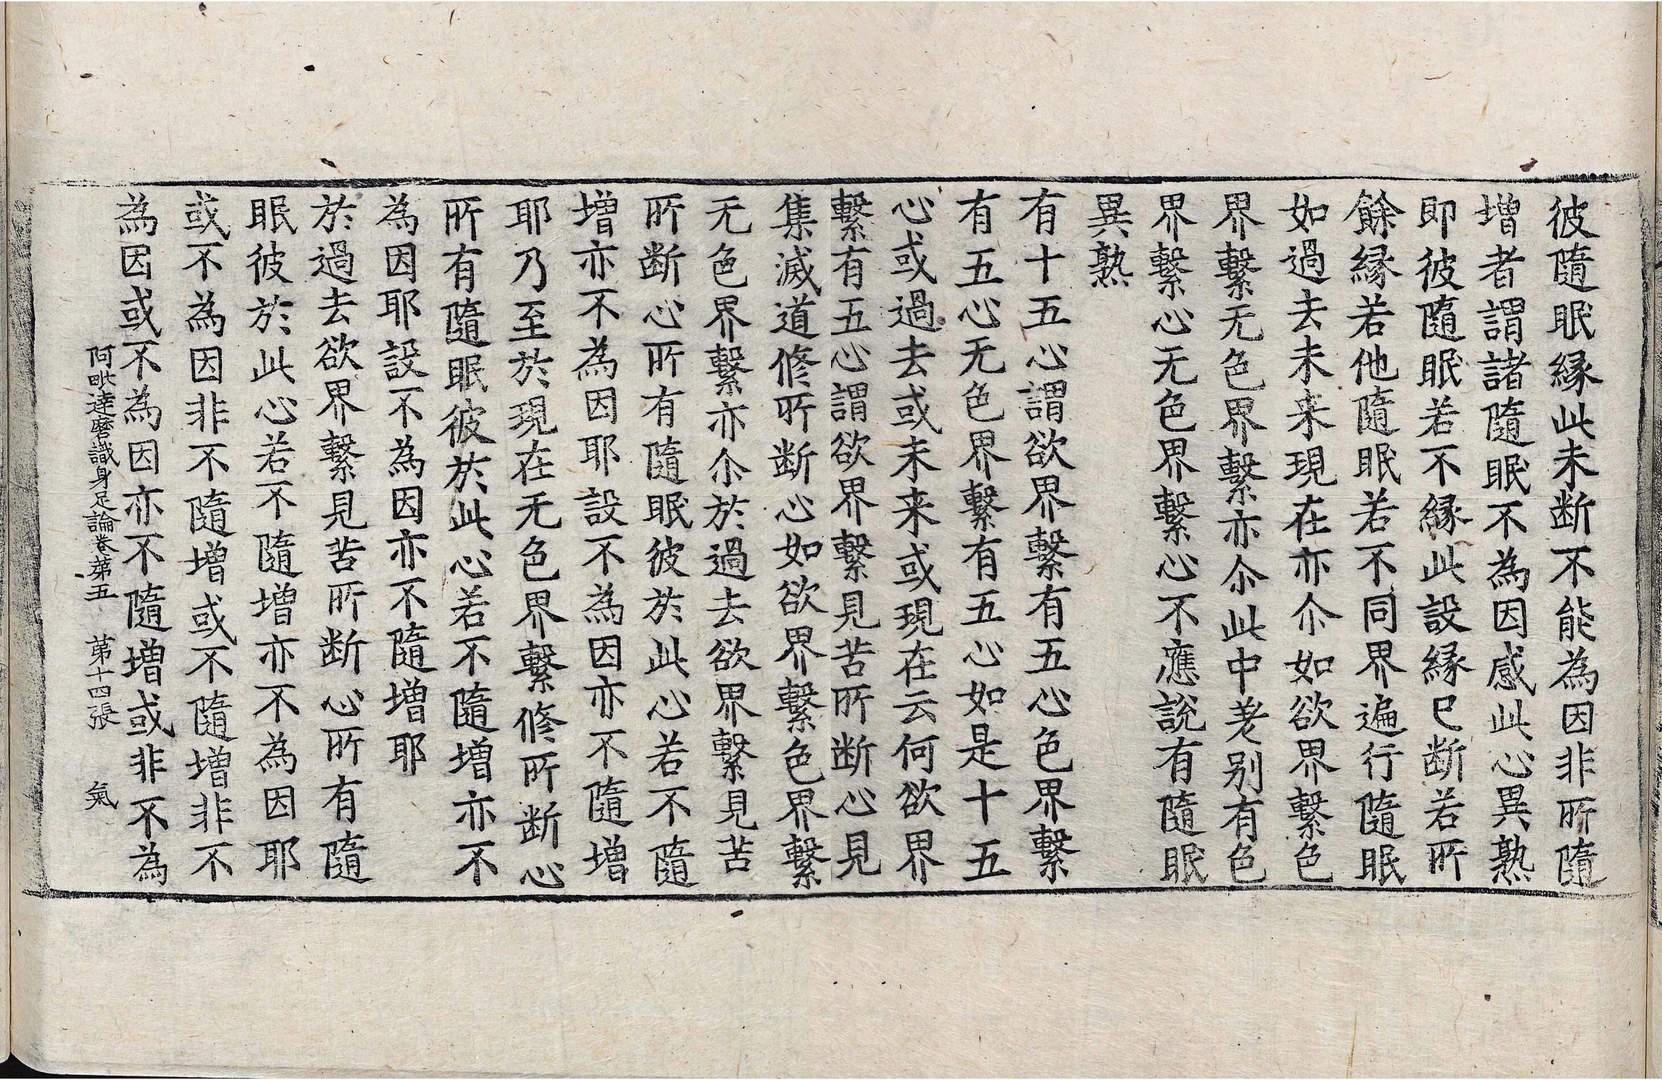 彼隨眠縁此未断不能為因非所隨
增者謂諸隨眠不為因感此心異熟
即彼隨眠若不縁此設縁已断若所
餘縁若他隨眠若不同界遍行隨眠
如過去未来現在亦尒如欲界繫色
界繫无色界繫亦尒此中差别有色
界繫心无色界繫心不應說有隨眠
異熟
有十五心謂欲界繫有五心色界繫
有五心无色界繫有五心如是十五
心或過去或未来或現在云何欲界
繫有五心謂欲界繫見苦所断心見
集滅道修所断心如欲界繫色界繫
无色界繫亦尒於過去欲界繫見苦
所断心所有隨眠彼於此心若不隨
增亦不為因耶設不為因亦不隨增
耶乃至於現在无色界繫修所断心
所有隨眠彼於此心若不隨增亦不
為因耶設不為因亦不隨增耶
於過去欲界繫見苦所断心所有隨
眠彼於此心若不隨增亦不為因耶
或不為因非不隨增或不隨增非不
為因或不為因亦不隨增或非不為
阿毗達磨識身足論卷第五 第十四張 氣